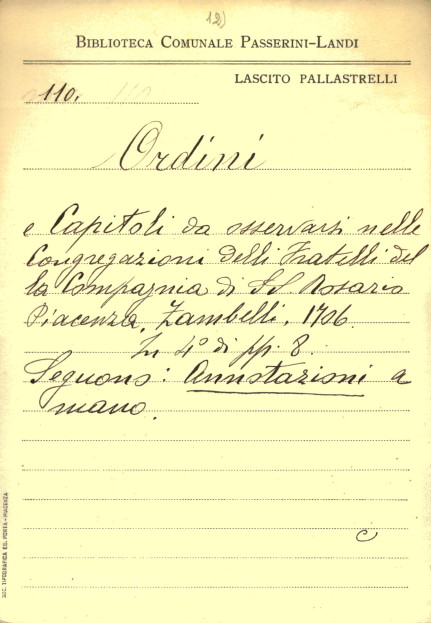 12)
BIBLIOTECA COMUNALE PASSERINI-LANDI
LASCITO PALLASTRELLI
110.
Ordini
e Capitoli da osservarsi nelle
Congregazioni delli Fratelli del
la Compagnia di SS Rosario
Piacenza, Zambelli, 1706.
In 4° di pp. 8.
Seguono: Annotazioni a
mano.
C
SOC. TIPOGRAFICA ED. PORTA - PIACENZA